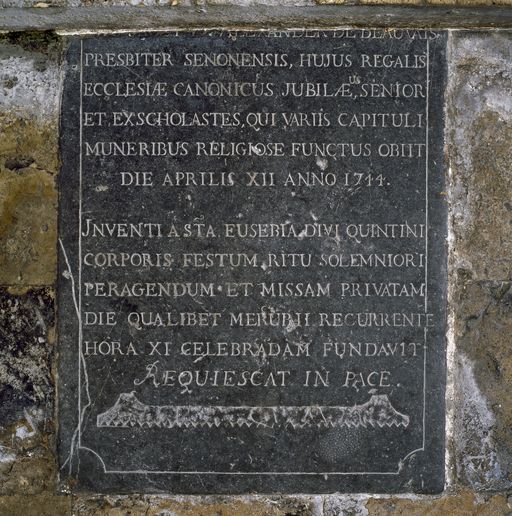 ALEXANDER DE BEAUVAIS
PRESBITER SENONENSIS, HUJUS REGALIS
ECCLESIÆ CANONICUS JUBILÆUS, SENIOR
ET EXSCHOLASTES, QUI VARIIS CAPITULI
MUNERIBUS RELIGIOSE FUNCTUS OBIIT
DIE APRILIS XII ANNO 1744.
INVENTI A STA EUSEBIA DIVI QUINTINI
CORPORIS FESTUM, RITU SOLEMNIORI
PERAGENDUM ET MISSAM PRIVATAM
DIE QUALIBET MERURII RECURRENTE
HORA XI CELEBRADAM FUNDAVIT
REQUIESCAT IN PACE.